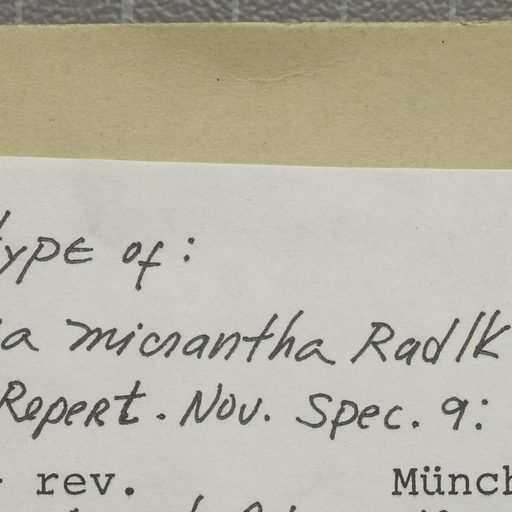 type of:
ia micrantha Radlk
Repert. Nov. Spec. 9:
rev. Münch